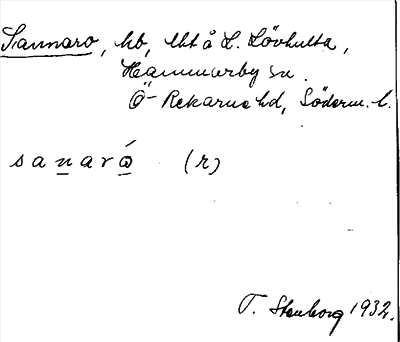 Sannaro, hb, lht å L. Lövhulta,
Hammarby sn.
Ö-Rekarne hd, Söderm. l.
sanarò (r)
T. Stenborg 1932.